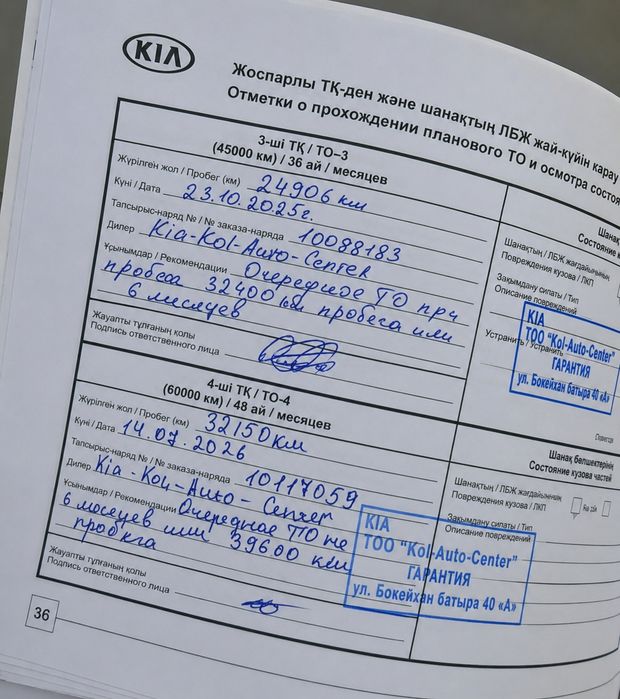 KIA
Жоспарлы ТҚ-ден және шанақтың ЛБЖ жай-күйін қарау
Отметки о прохождении планового ТО и осмотра состоя
3-ші ТҚ / ТО–3
(45000 км) / 36 ай / месяцев
Жүрілген жол / Пробег (км) 24906 км
Күні / Дата 23.10.2025г.
Тапсырыс-наряд № / № заказа-наряда 10088183
Дилер Kia-Kol-Auto-Center
Ұсынымдар / Рекомендации Очередное ТО при
пробега 32400 км пробега или
6 месяцев
Жауапты тұлғаның қолы
Подпись ответственного лица
Шанақ
Состояние к
Шанақтың / ЛБЖ жағдайынның
Повреждения кузова / ЛКП
Зақымдану сипаты / Тип
Описание повреждений
Устранить / Устранить
KIA
ТОО "Kol-Auto-Center"
ГАРАНТИЯ
ул. Бокейхан батыра 40 «А»
4-ші ТҚ / ТО-4
(60000 км) / 48 ай / месяцев
Жүрілген жол / Пробег (км) 32150км
Күні / Дата 14.07.2026
Тапсырыс-наряд № / № заказа-наряда 10117059
Дилер Kia-Kou-Auto-Center
Ұсынымдар / Рекомендации Очередное ТО не
6 месяцев или 39600 км
пробега
Жауапты тұлғаның қолы
Подпись ответственного лица
Шанақ бөлшектерінің
Состояние кузова частей
Шанақтың / ЛБЖ жағдайынның
Повреждения кузова / ЛКП
Зақымдану сипаты / Тип
Описание повреждений
KIA
ТОО "Kol-Auto-Center"
ГАРАНТИЯ
ул. Бокейхан батыра 40 «А»
36